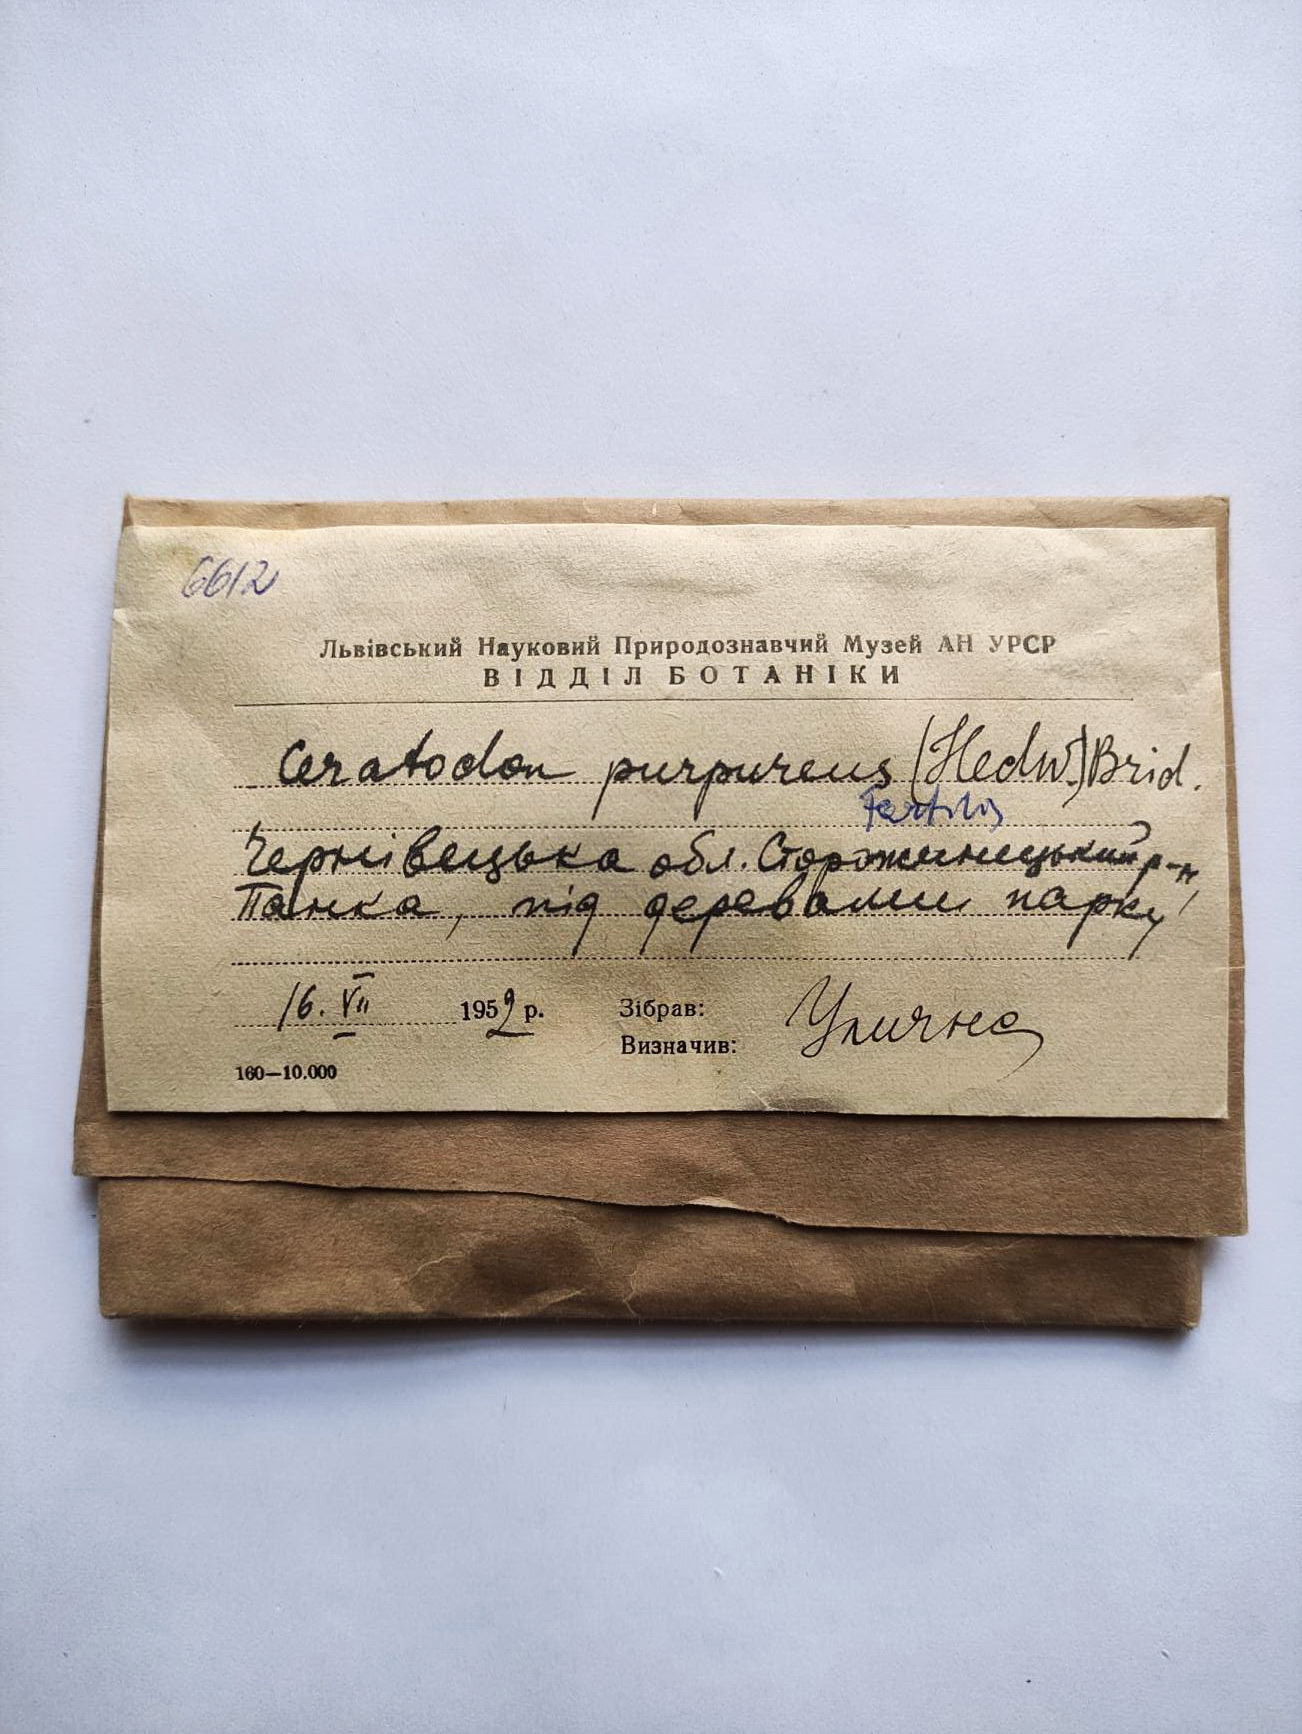 6612
Львівський Науковий Природознавчий Музей АН УРСР
ВІДДІЛ БОТАНІКИ
Ceratodon purpureus (Hedw.) Brid.
Fertilis
Чернівецька обл. Сторожинецький р-н,
Панка, під деревами парку
16. VII 1959 р. Зібрав: Улична
Визначив:
160—10.000